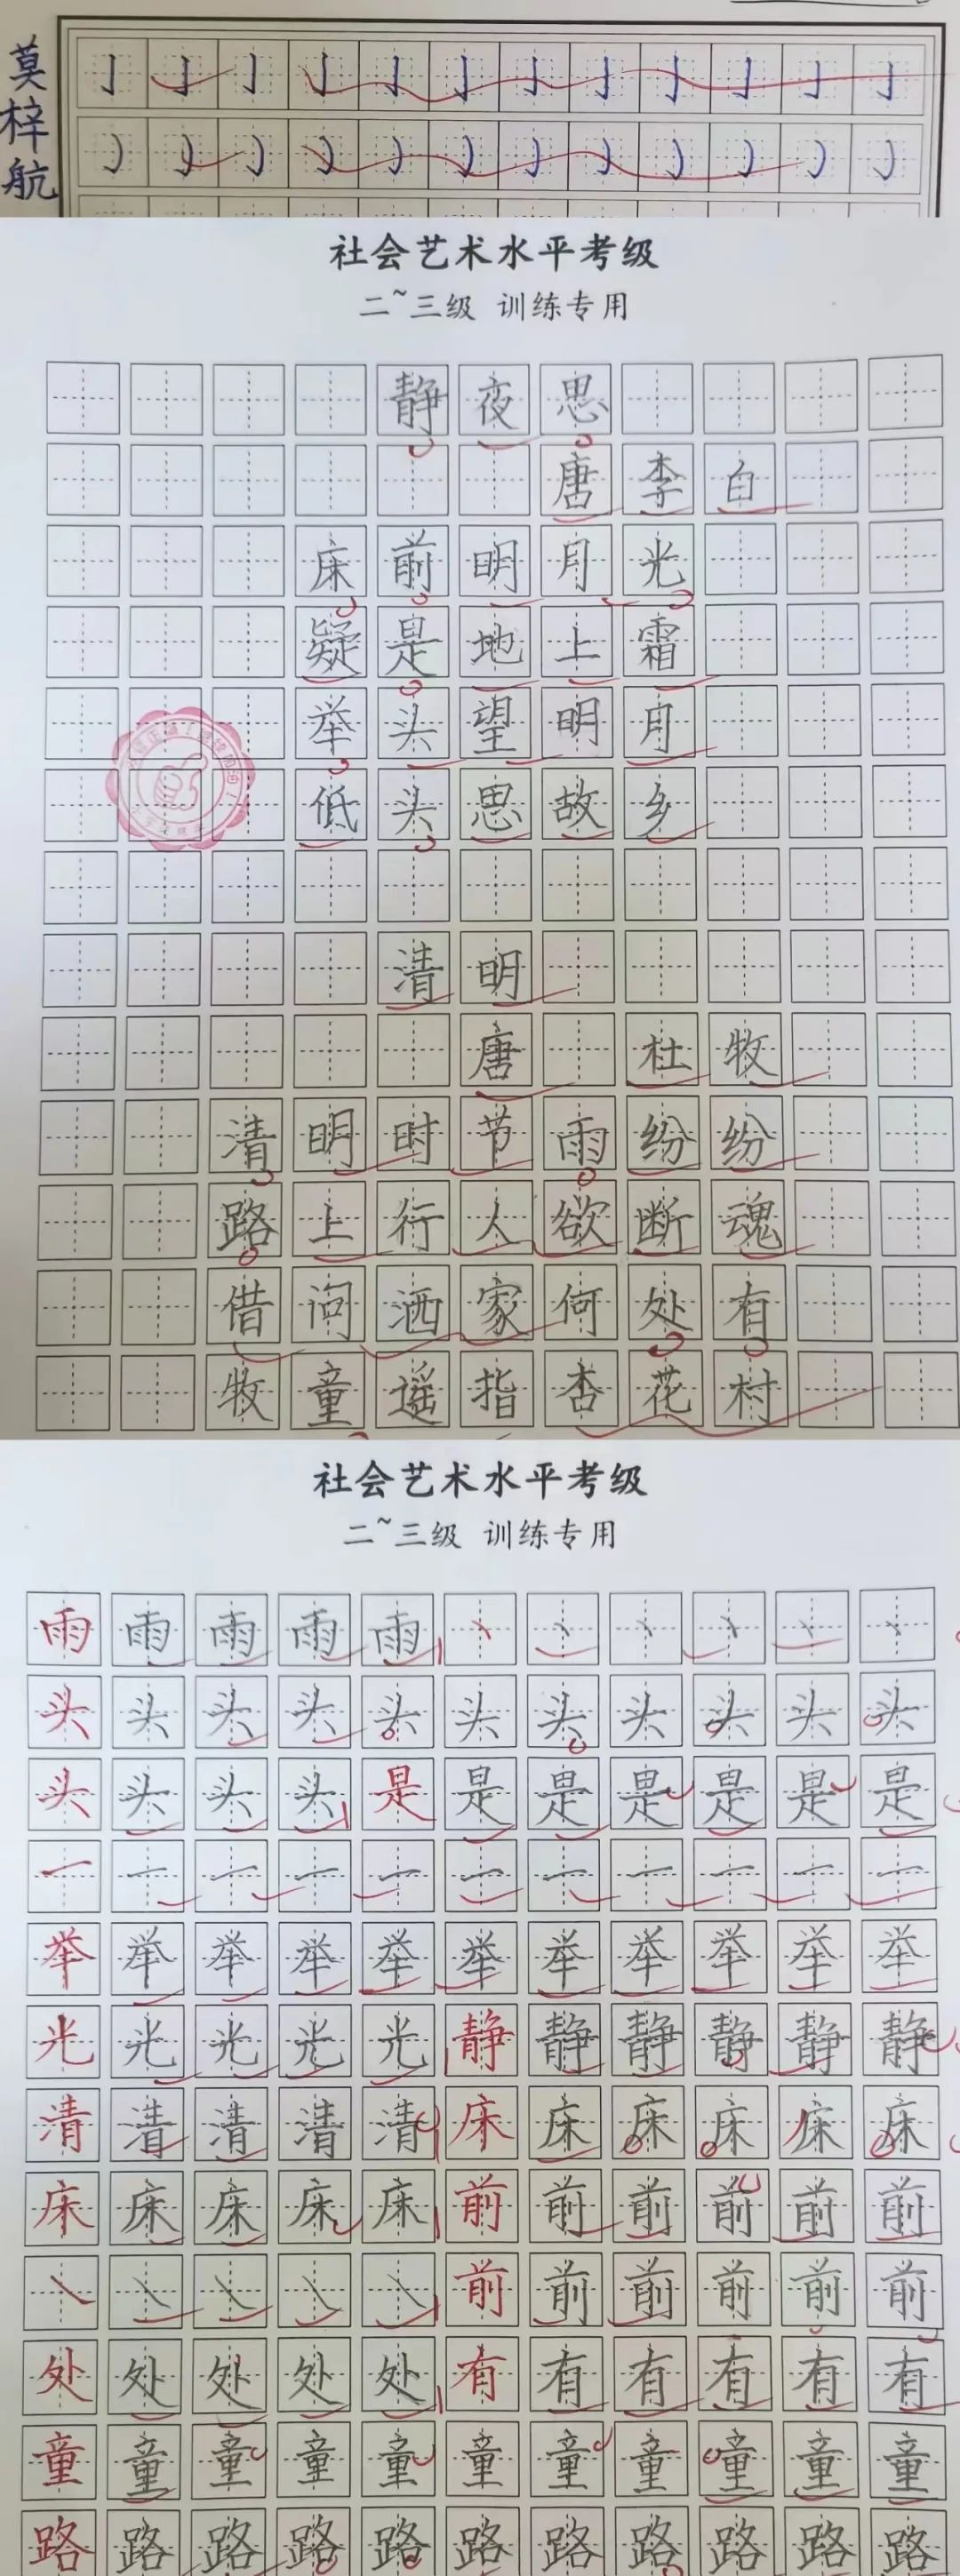 莫梓航
亅亅亅亅亅亅亅亅亅亅亅亅
社会艺术水平考级
二~三级 训练专用
静夜思
唐李白
床前明月光
疑是地上霜
举头望明月
低头思故乡
清明
唐 杜牧
清明时节雨纷纷
路上行人欲断魂
借问洒家何处有
牧童遥指杏花村
社会艺术水平考级
二~三级 训练专用
雨雨雨雨雨丶丶丶丶丶丶
头头头头头头头头头头头
头头头头是是是是是是是
一一一一一一一一一一一
举举举举举举举举举举举
光光光光光静静静静静静
清清清清清床床床床床床
床床床床床前前前前前前
㇏㇏㇏㇏㇏前前前前前前
处处处处处有有有有有有
童童童童童童童童童童童
路路路路路路路路路路路